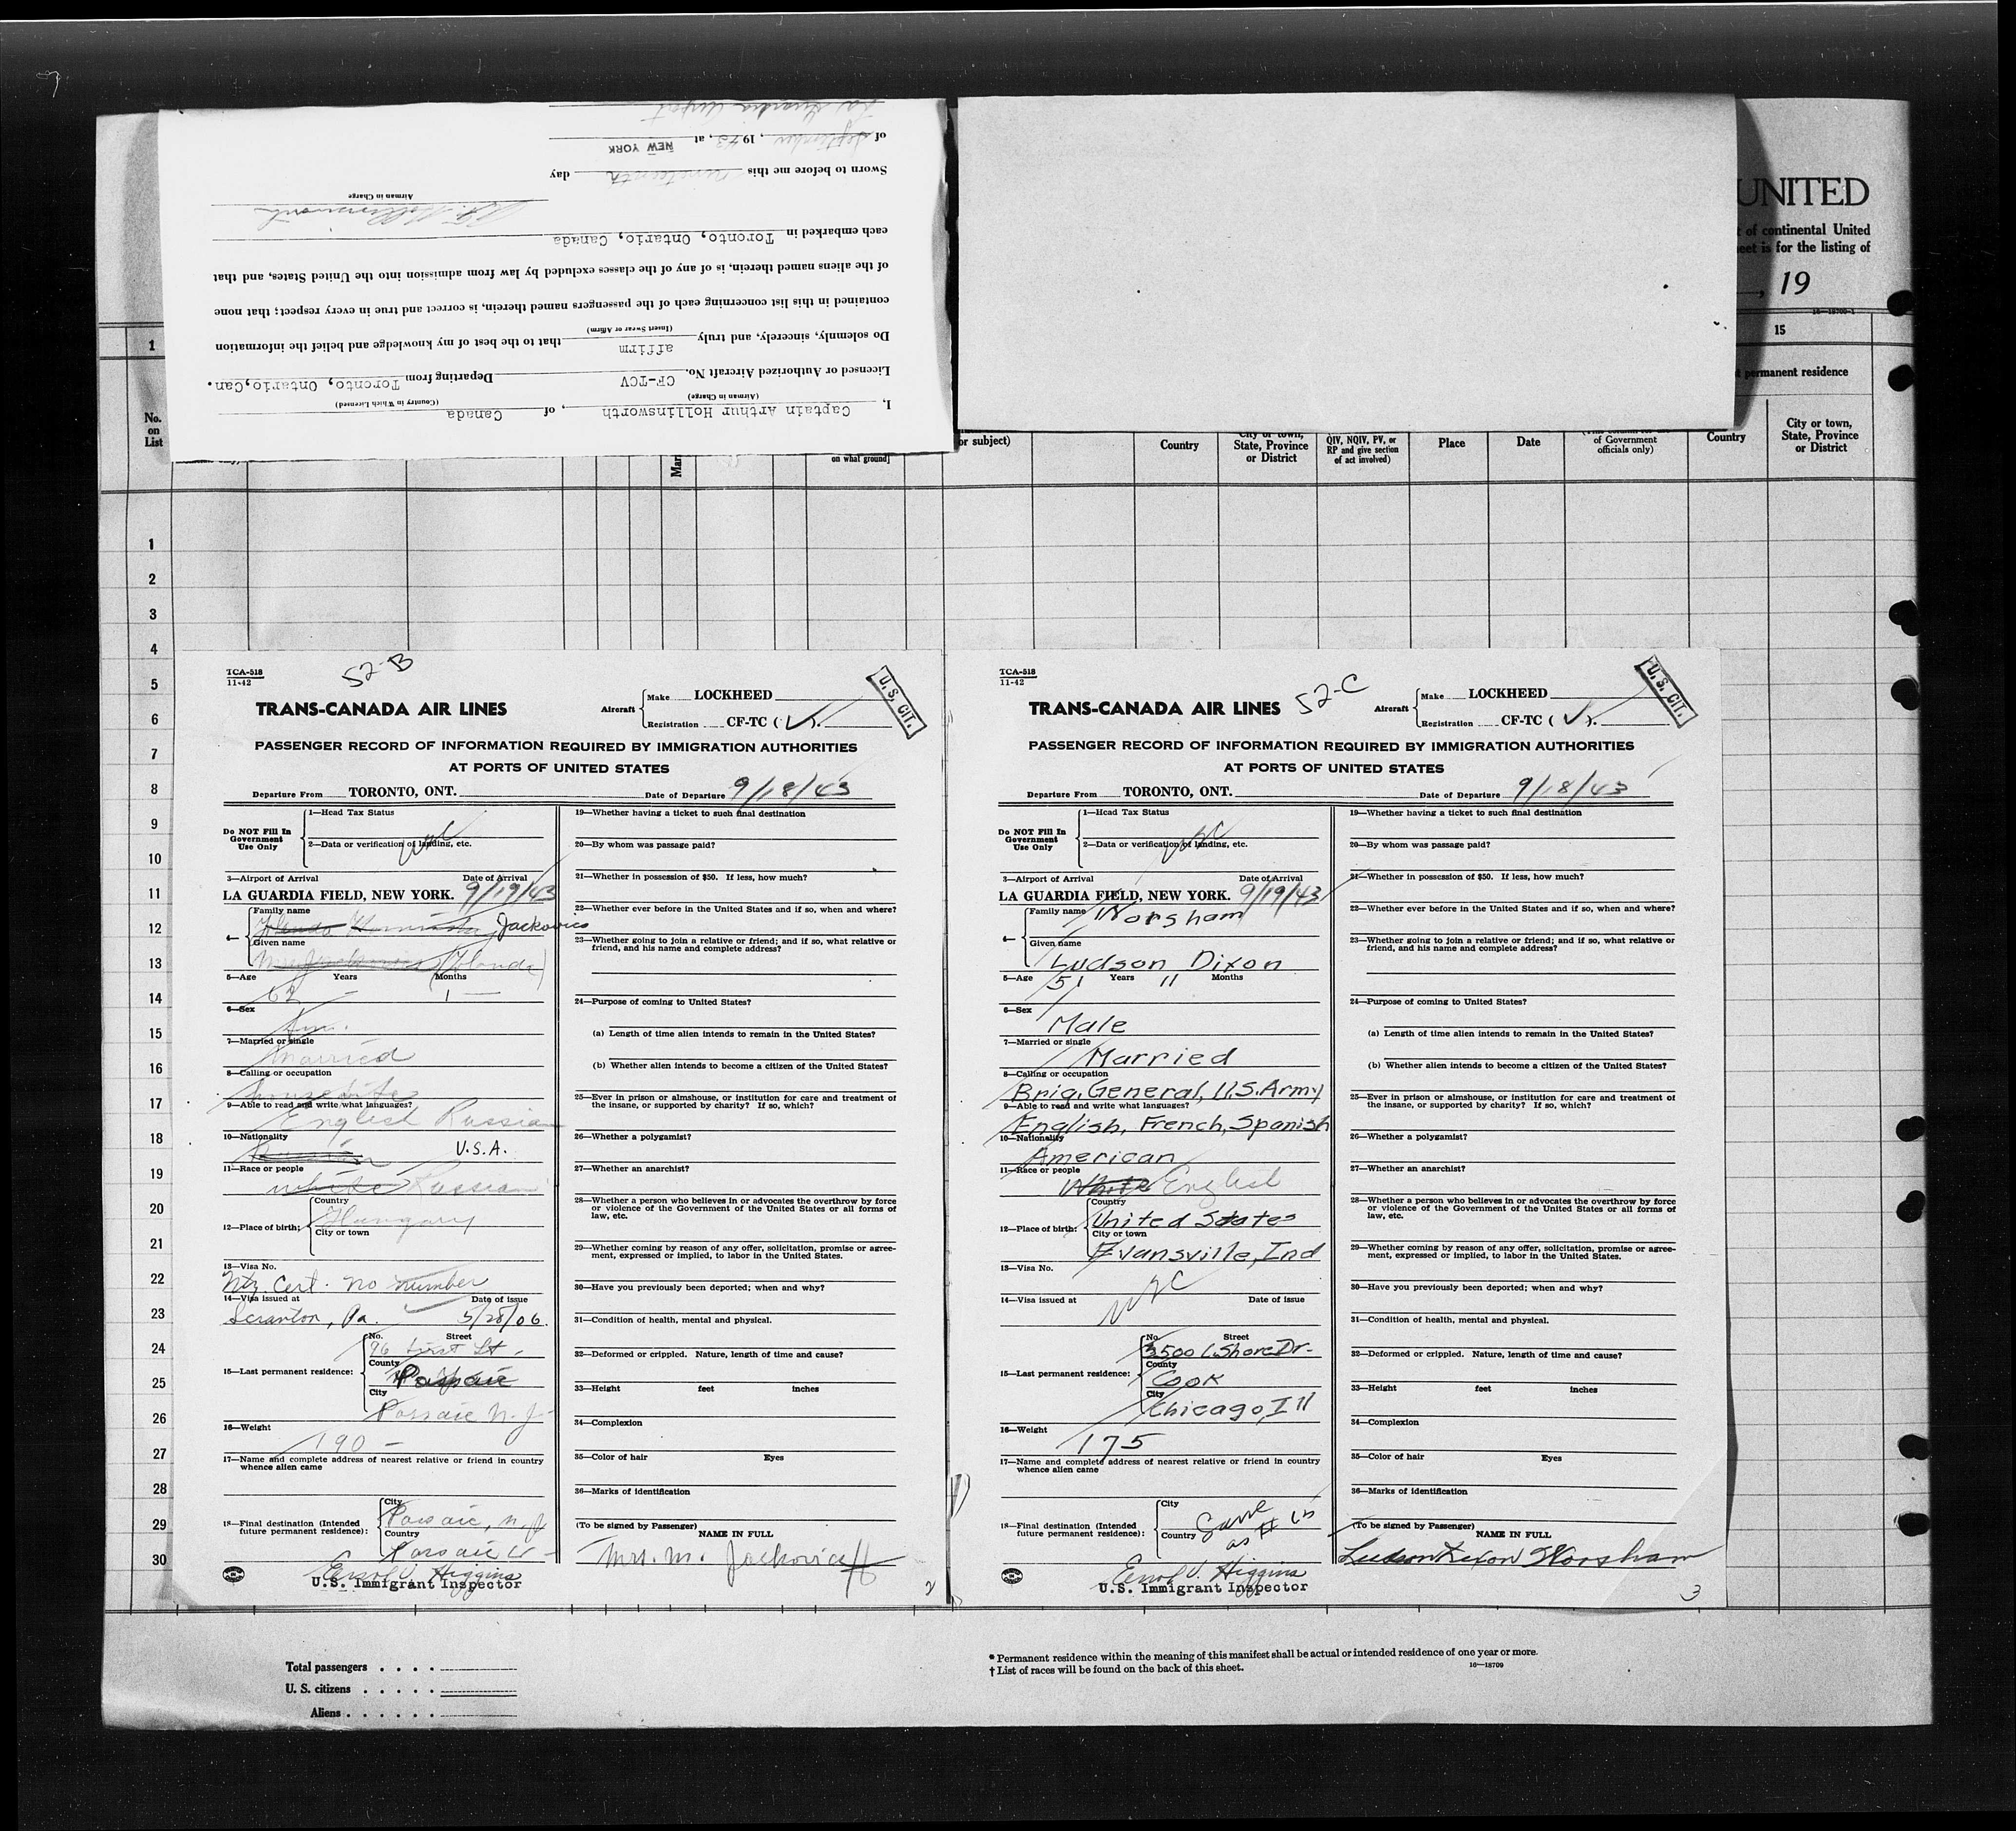 I, Captain Arthur Hollinsworth, of Canada
(Airman in Charge) (Country in Which Licensed)
Licensed or Authorized Aircraft No. CF-TCV Departing from Toronto, Ontario, Can.
Do solemnly, sincerely, and truly affirm that to the best of my knowledge and belief the information
(Insert Swear or Affirm)
contained in this list concerning each of the passengers named therein, is correct and true in every respect; that none
of the aliens named therein, is of any of the classes excluded by law from admission into the United States, and that
each embarked in Toronto, Ontario, Canada
Airman in Charge
Sworn to before me this nineteenth day
of September, 1943, at NEW YORK
La Guardia Airport
UNITED
t of continental United
eet is for the listing of
, 19
16—18709-1
1
15
permanent residence
No.
on
List
Mar
on what ground]
or subject)
Country
City or town,
State, Province
or District
QIV, NQIV, PV, or
RP and give section
of act involved)
Place
Date
of Government
officials only)
Country
City or town,
State, Province
or District
1
2
3
4
5
6
7
8
9
10
11
12
13
14
15
16
17
18
19
20
21
22
23
24
25
26
27
28
29
30
TCA-518
11-42
52-B
TRANS-CANADA AIR LINES
Aircraft
Make LOCKHEED
Registration CF-TC (V).
U.S. CIT.
PASSENGER RECORD OF INFORMATION REQUIRED BY IMMIGRATION AUTHORITIES
AT PORTS OF UNITED STATES
Departure From TORONTO, ONT. Date of Departure 9/18/43
Do NOT Fill In
Government
Use Only
1—Head Tax Status
2—Data or verification of landing, etc.
3—Airport of Arrival Date of Arrival
LA GUARDIA FIELD, NEW YORK. 9/19/43
4—
Family name
Jackovics
Given name
(Yolanda)
5—Age Years Months
62 1
6—Sex
Fm.
7—Married or single
Married
8—Calling or occupation
housewife
9—Able to read and write what languages?
English Russian
10—Nationality
Russian U.S.A.
11—Race or people
white Russian
12—Place of birth:
Country
Hungary
City or town
13—Visa No.
Ntz. Cert. no number
14—Visa issued at Date of issue
Scranton, Pa. 5/28/06.
15—Last permanent residence:
No. Street
96 First St.
County
Passaic
City
Passaic N.J.
16—Weight
190 —
17—Name and complete address of nearest relative or friend in country
whence alien came
18—Final destination (Intended
future permanent residence):
City
Passaic, N.J.
Country
Passaic
Errol V. Higgins
U.S. Immigrant Inspector
19—Whether having a ticket to such final destination
20—By whom was passage paid?
21—Whether in possession of $50. If less, how much?
22—Whether ever before in the United States and if so, when and where?
23—Whether going to join a relative or friend; and if so, what relative or
friend, and his name and complete address?
24—Purpose of coming to United States?
(a) Length of time alien intends to remain in the United States?
(b) Whether alien intends to become a citizen of the United States?
25—Ever in prison or almshouse, or institution for care and treatment of
the insane, or supported by charity? If so, which?
26—Whether a polygamist?
27—Whether an anarchist?
28—Whether a person who believes in or advocates the overthrow by force
or violence of the Government of the United States or all forms of
law, etc.
29—Whether coming by reason of any offer, solicitation, promise or agree-
ment, expressed or implied, to labor in the United States.
30—Have you previously been deported; when and why?
31—Condition of health, mental and physical.
32—Deformed or crippled. Nature, length of time and cause?
33—Height feet inches
34—Complexion
35—Color of hair Eyes
36—Marks of identification
(To be signed by Passenger)
NAME IN FULL
Mrs. M. Jackovics
2
TCA-518
11-42
52-C
TRANS-CANADA AIR LINES
Aircraft
Make LOCKHEED
Registration CF-TC (V).
U.S. CIT.
PASSENGER RECORD OF INFORMATION REQUIRED BY IMMIGRATION AUTHORITIES
AT PORTS OF UNITED STATES
Departure From TORONTO, ONT. Date of Departure 9/18/43
Do NOT Fill In
Government
Use Only
1—Head Tax Status
2—Data or verification of landing, etc.
3—Airport of Arrival Date of Arrival
LA GUARDIA FIELD, NEW YORK. 9/19/43
4—
Family name
Worsham
Given name
Ludson Dixon
5—Age Years Months
51 11
6—Sex
Male
7—Married or single
Married
8—Calling or occupation
Brig. General, U.S. Army
9—Able to read and write what languages?
English, French, Spanish
10—Nationality
American
11—Race or people
White English
12—Place of birth:
Country
United States
City or town
Evansville, Ind
13—Visa No.
14—Visa issued at Date of issue
15—Last permanent residence:
No. Street
3500 L. Shore Dr.
County
Cook
City
Chicago, Ill
16—Weight
175
17—Name and complete address of nearest relative or friend in country
whence alien came
18—Final destination (Intended
future permanent residence):
City
Country
Same
as # 15
Errol V. Higgins
U.S. Immigrant Inspector
19—Whether having a ticket to such final destination
20—By whom was passage paid?
21—Whether in possession of $50. If less, how much?
22—Whether ever before in the United States and if so, when and where?
23—Whether going to join a relative or friend; and if so, what relative or
friend, and his name and complete address?
24—Purpose of coming to United States?
(a) Length of time alien intends to remain in the United States?
(b) Whether alien intends to become a citizen of the United States?
25—Ever in prison or almshouse, or institution for care and treatment of
the insane, or supported by charity? If so, which?
26—Whether a polygamist?
27—Whether an anarchist?
28—Whether a person who believes in or advocates the overthrow by force
or violence of the Government of the United States or all forms of
law, etc.
29—Whether coming by reason of any offer, solicitation, promise or agree-
ment, expressed or implied, to labor in the United States.
30—Have you previously been deported; when and why?
31—Condition of health, mental and physical.
32—Deformed or crippled. Nature, length of time and cause?
33—Height feet inches
34—Complexion
35—Color of hair Eyes
36—Marks of identification
(To be signed by Passenger)
NAME IN FULL
Ludson Dixon Worsham
3
Total passengers . . . .
U. S. citizens . . . . .
Aliens . . . . . .
* Permanent residence within the meaning of this manifest shall be actual or intended residence of one year or more.
† List of races will be found on the back of this sheet.
16—18709